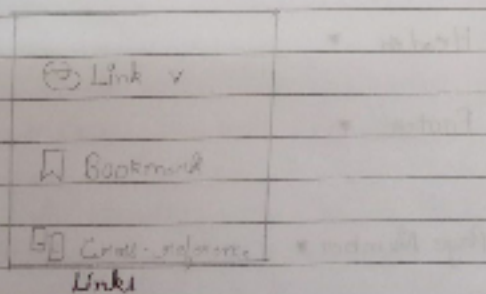 Link v
Bookmark
Cross-reference
Links